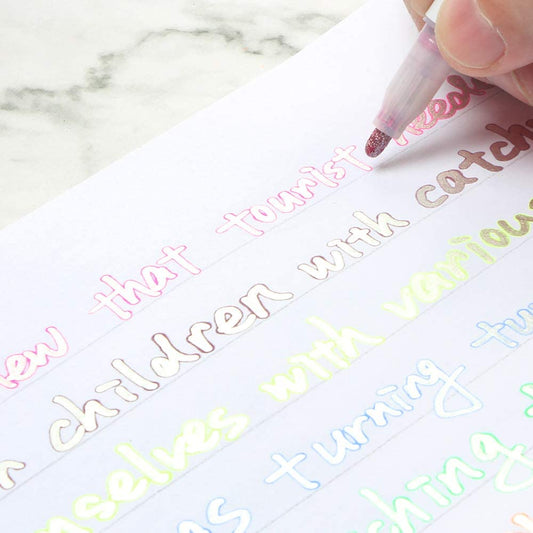 new that tourist need
children with catch
mselves with various
as turning tu
shing